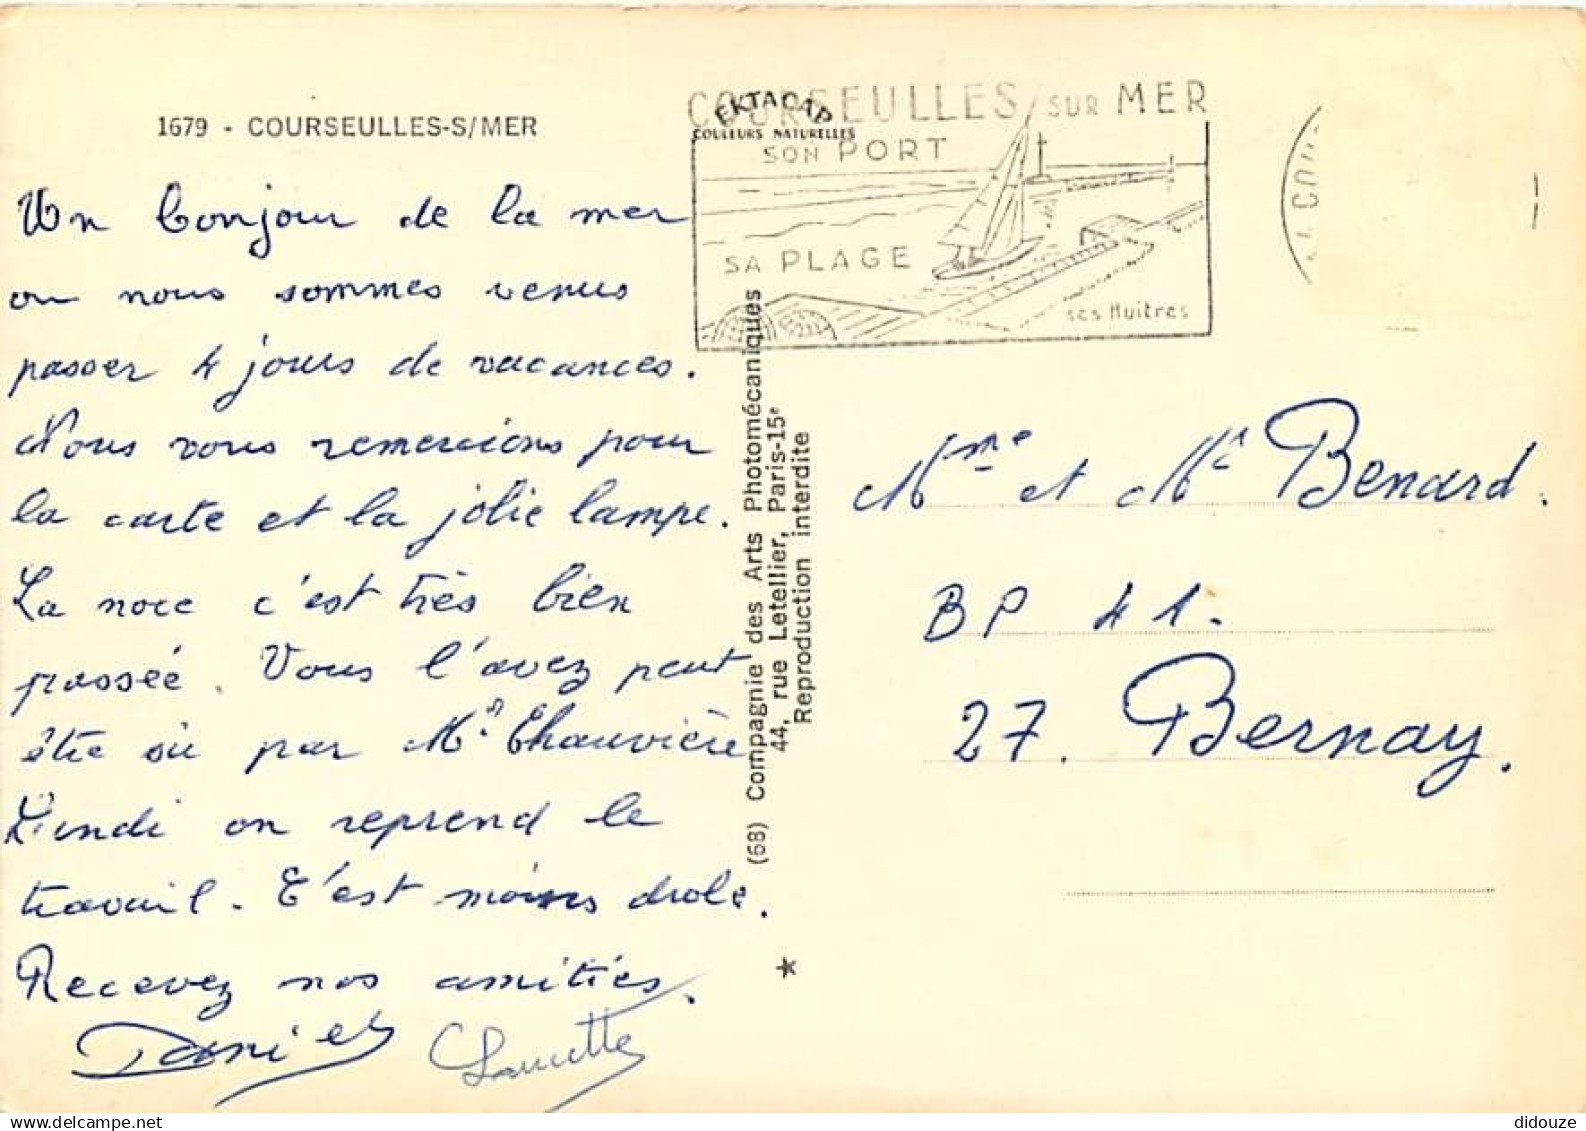 1679 - COURSEULLES-S/MER
Un bonjour de la mer
ou nous sommes venus
passer 4 jours de vacances.
Nous vous remercions pour
la carte et la jolie lampe.
La noce c'est très bien
passée. Vous l'avez peut
être su par Mr Chauvière
Lundi on reprend le
travail. C'est moins drole.
Recevez nos amitiés.
Daniel Laucette
EKTACAP
COULEURS NATURELLES
COURSEULLES SUR MER
SON PORT
SA PLAGE
ses Huitres
(68) Compagnie des Arts Photomécaniques
44, rue Letellier, Paris-15e
Reproduction interdite
Mme et Mr Benard.
BP 41.
27. Bernay.
delcampe.net
didouze